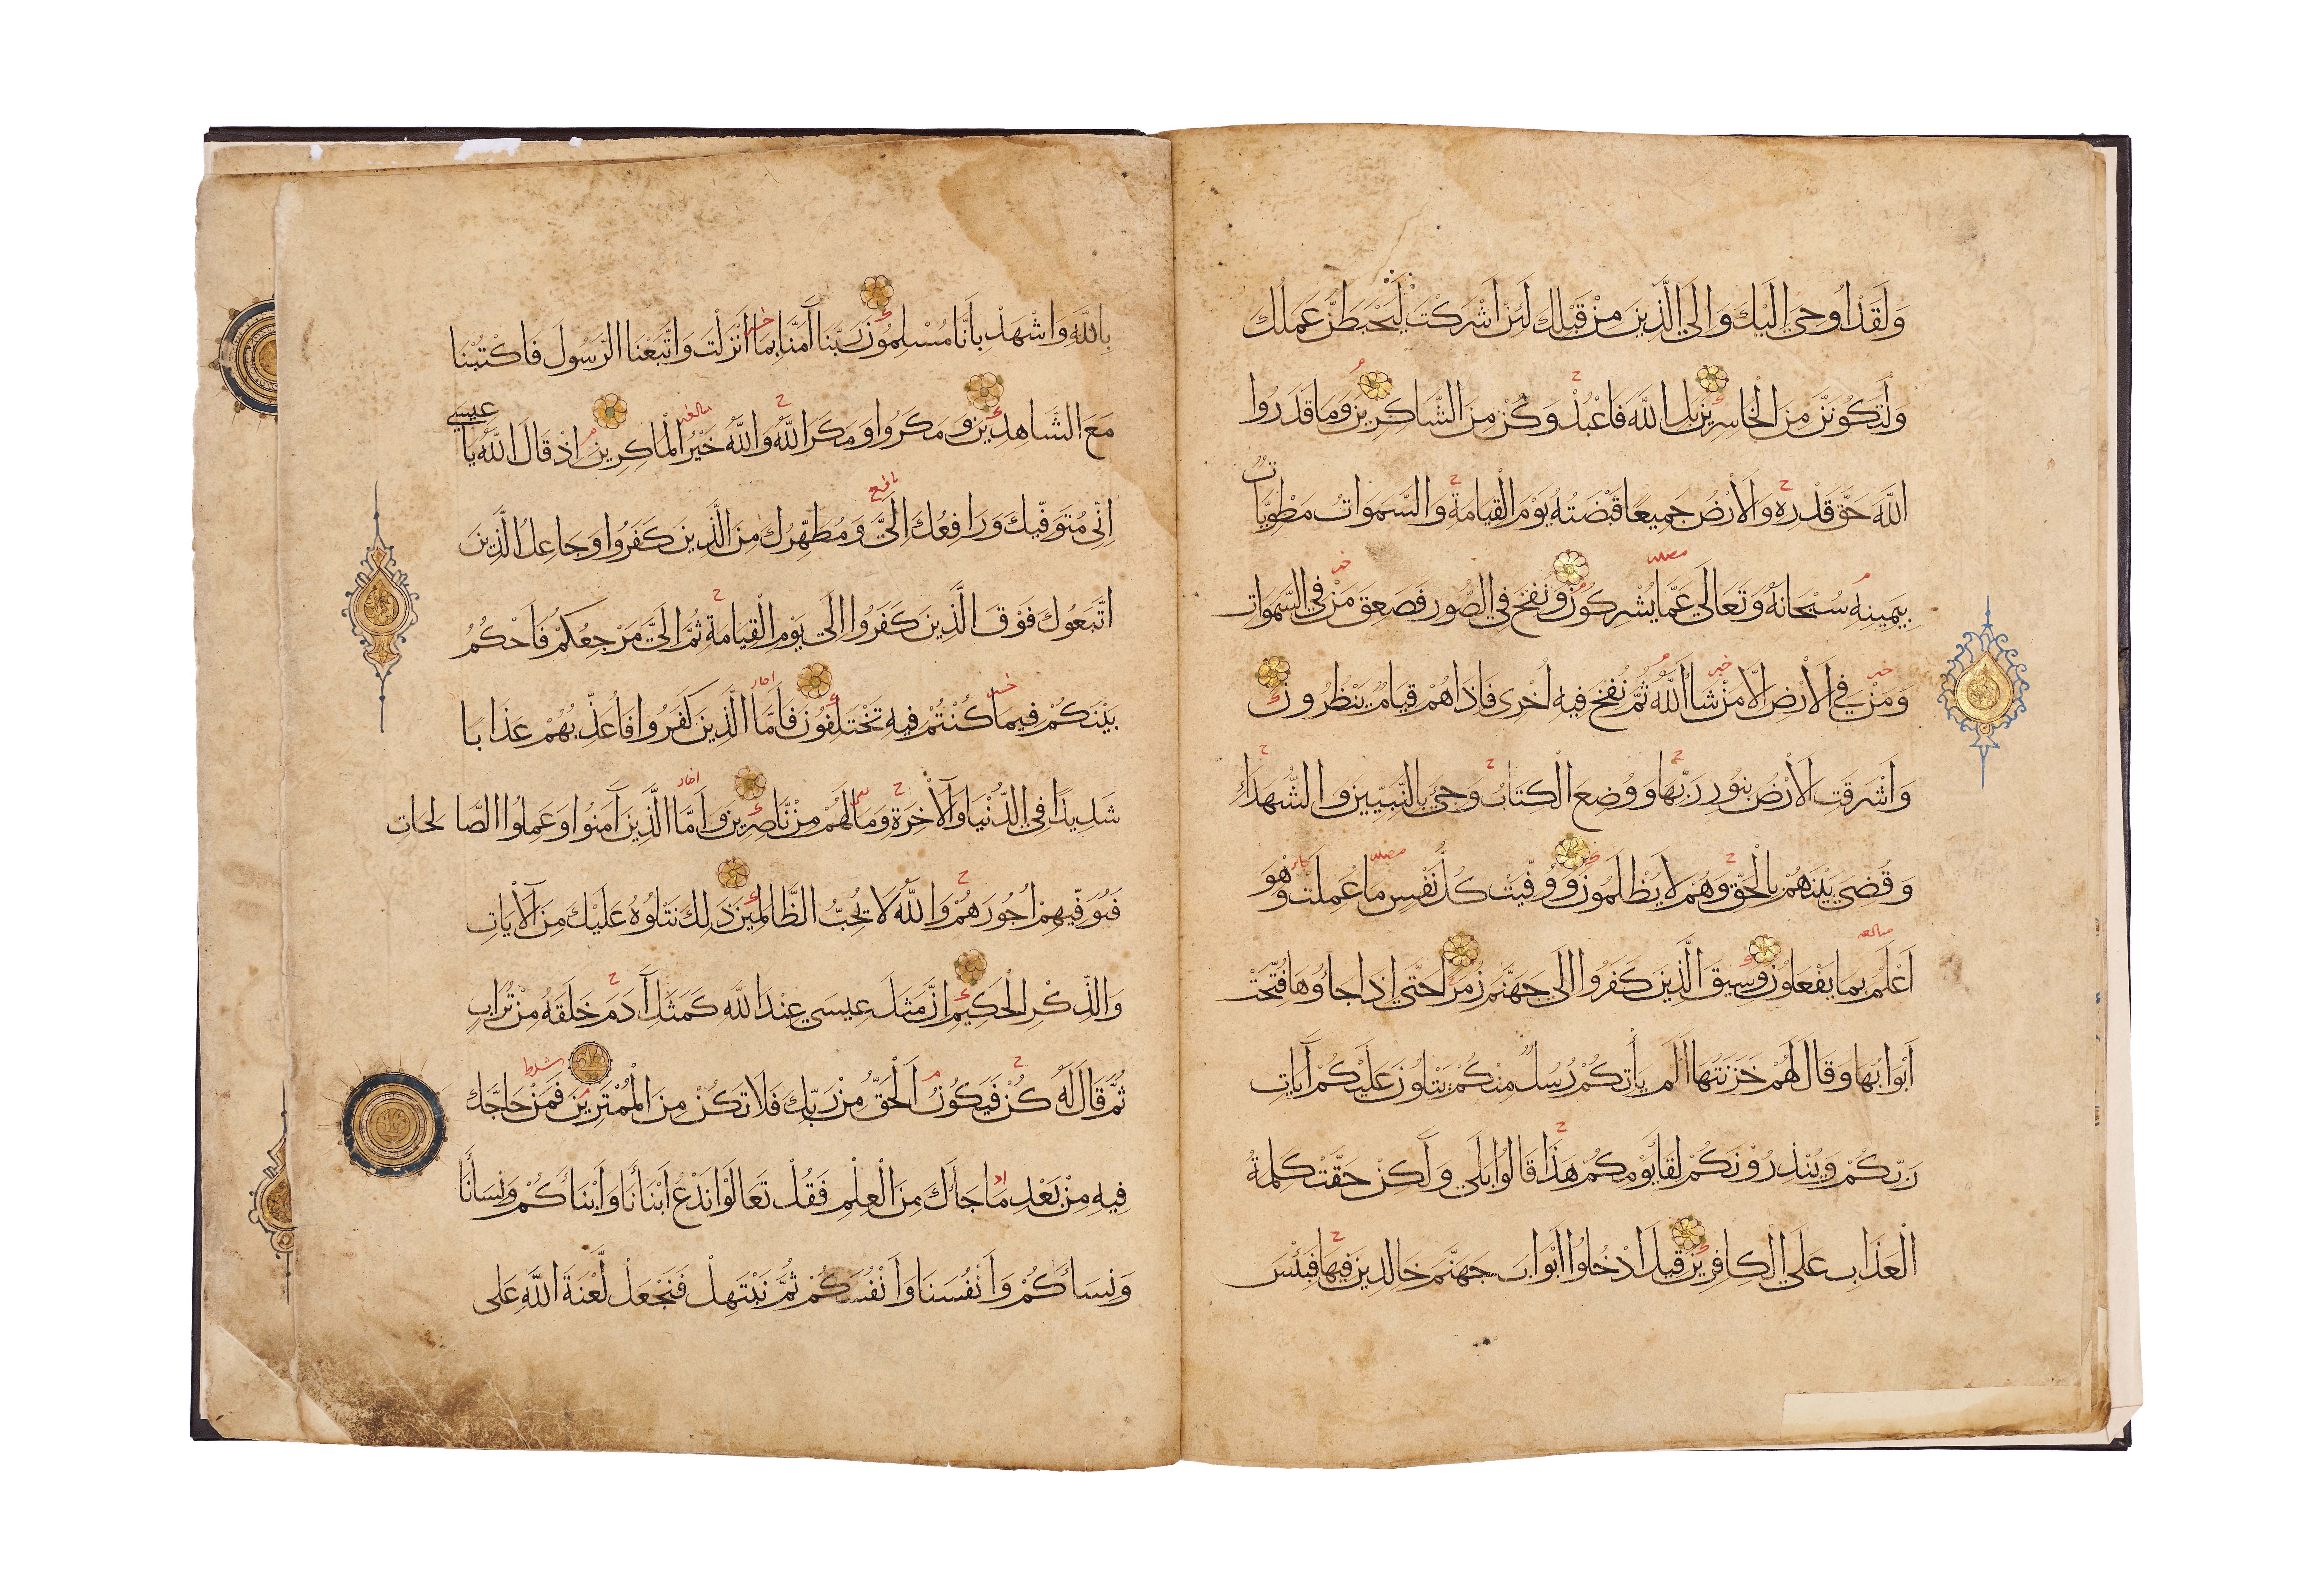 وَلَقَدْ اُوحِيَ اِلَيْكَ وَاِلَي الَّذِينَ مِنْ قَبْلِكَ لَئِنْ اَشْرَكْتَ لَيَحْبَطَنَّ عَمَلُكَ
وَلَتَكُونَنَّ مِنَ الْخَاسِرِينَ بَلِ اللَّهَ فَاعْبُدْ وَكُنْ مِنَ الشَّاكِرِينَ وَمَا قَدَرُوا
اللَّهَ حَقَّ قَدْرِهِ وَالْاَرْضُ جَمِيعًا قَبْضَتُهُ يَوْمَ الْقِيَامَةِ وَالسَّمَوَاتُ مَطْوِيَّاتٌ
بِيَمِينِهِ سُبْحَانَهُ وَتَعَالَي عَمَّا يُشْرِكُونَ وَنُفِخَ فِي الصُّورِ فَصَعِقَ مَنْ فِي السَّمَوَاتِ
وَمَنْ فِي الْاَرْضِ اِلَّا مَنْ شَاَ اللَّهُ ثُمَّ نُفِخَ فِيهِ اُخْرَى فَاِذَا هُمْ قِيَامٌ يَنْظُرُونَ
وَاَشْرَقَتِ الْاَرْضُ بِنُورِ رَبِّهَا وَوُضِعَ الْكِتَابُ وَجِيَ بِالنَّبِيِّينَ وَالشُّهَدَاءِ
وَقُضِيَ بَيْنَهُمْ بِالْحَقِّ وَهُمْ لَا يُظْلَمُونَ وَوُفِّيَتْ كُلُّ نَفْسٍ مَا عَمِلَتْ وَهْوَ
اَعْلَمُ بِمَا يَفْعَلُونَ وَسِيقَ الَّذِينَ كَفَرُوا اِلَي جَهَنَّمَ زُمَرًا حَتَّي اِذَا جَاؤُوهَا فُتِّحَتْ
اَبْوَابُهَا وَقَالَ لَهُمْ خَزَنَتُهَا اَلَمْ يَأْتِكُمْ رُسُلٌ مِنْكُمْ يَتْلُونَ عَلَيْكُمْ آيَاتِ
رَبِّكُمْ وَيُنْذِرُونَكُمْ لِقَاَ يَوْمِكُمْ هَذَا قَالُوا بَلَي وَلَكِنْ حَقَّتْ كَلِمَةُ
الْعَذَابِ عَلَي الْكَافِرِينَ قِيلَ ادْخُلُوا اَبْوَابَ جَهَنَّمَ خَالِدِينَ فِيهَا فَبِئْسَ
بِاللَّهِ وَاشْهَدْ بِاَنَّا مُسْلِمُونَ رَبَّنَا آمَنَّا بِمَا اَنْزَلْتَ وَاتَّبَعْنَا الرَّسُولَ فَاكْتُبْنَا
مَعَ الشَّاهِدِينَ وَمَكَرُوا وَمَكَرَ اللَّهُ وَاللَّهُ خَيْرُ الْمَاكِرِينَ اِذْ قَالَ اللَّهُ يَا عِيسَي
اِنِّي مُتَوَفِّيكَ وَرَافِعُكَ اِلَيَّ وَمُطَهِّرُكَ مِنَ الَّذِينَ كَفَرُوا وَجَاعِلُ الَّذِينَ
اتَّبَعُوكَ فَوْقَ الَّذِينَ كَفَرُوا اِلَي يَوْمِ الْقِيَامَةِ ثُمَّ اِلَيَّ مَرْجِعُكُمْ فَاَحْكُمُ
بَيْنَكُمْ فِيمَا كُنْتُمْ فِيهِ تَخْتَلِفُونَ فَاَمَّا الَّذِينَ كَفَرُوا فَاُعَذِّبُهُمْ عَذَابًا
شَدِيدًا فِي الدُّنْيَا وَالْآخِرَةِ وَمَا لَهُمْ مِنْ نَّاصِرِينَ وَاَمَّا الَّذِينَ آمَنُوا وَعَمِلُوا الصَّالِحَاتِ
فَنُوَفِّيهِمْ اُجُورَهُمْ وَاللَّهُ لَا يُحِبُّ الظَّالِمِينَ ذَلِكَ نَتْلُوهُ عَلَيْكَ مِنَ الْآيَاتِ
وَالذِّكْرِ الْحَكِيمِ اِنَّ مَثَلَ عِيسَي عِنْدَ اللَّهِ كَمَثَلِ آدَمَ خَلَقَهُ مِنْ تُرَابٍ
ثُمَّ قَالَ لَهُ كُنْ فَيَكُونُ اَلْحَقُّ مِنْ رَبِّكَ فَلَا تَكُنْ مِنَ الْمُمْتَرِينَ فَمَنْ حَاجَّكَ
فِيهِ مِنْ بَعْدِ مَا جَاَكَ مِنَ الْعِلْمِ فَقُلْ تَعَالَوْا نَدْعُ اَبْنَاَنَا وَاَبْنَاَكُمْ وَنِسَاَنَا
وَنِسَاَكُمْ وَاَنْفُسَنَا وَاَنْفُسَكُمْ ثُمَّ نَبْتَهِلْ فَنَجْعَلْ لَّعْنَةَ اللَّهِ عَلَى